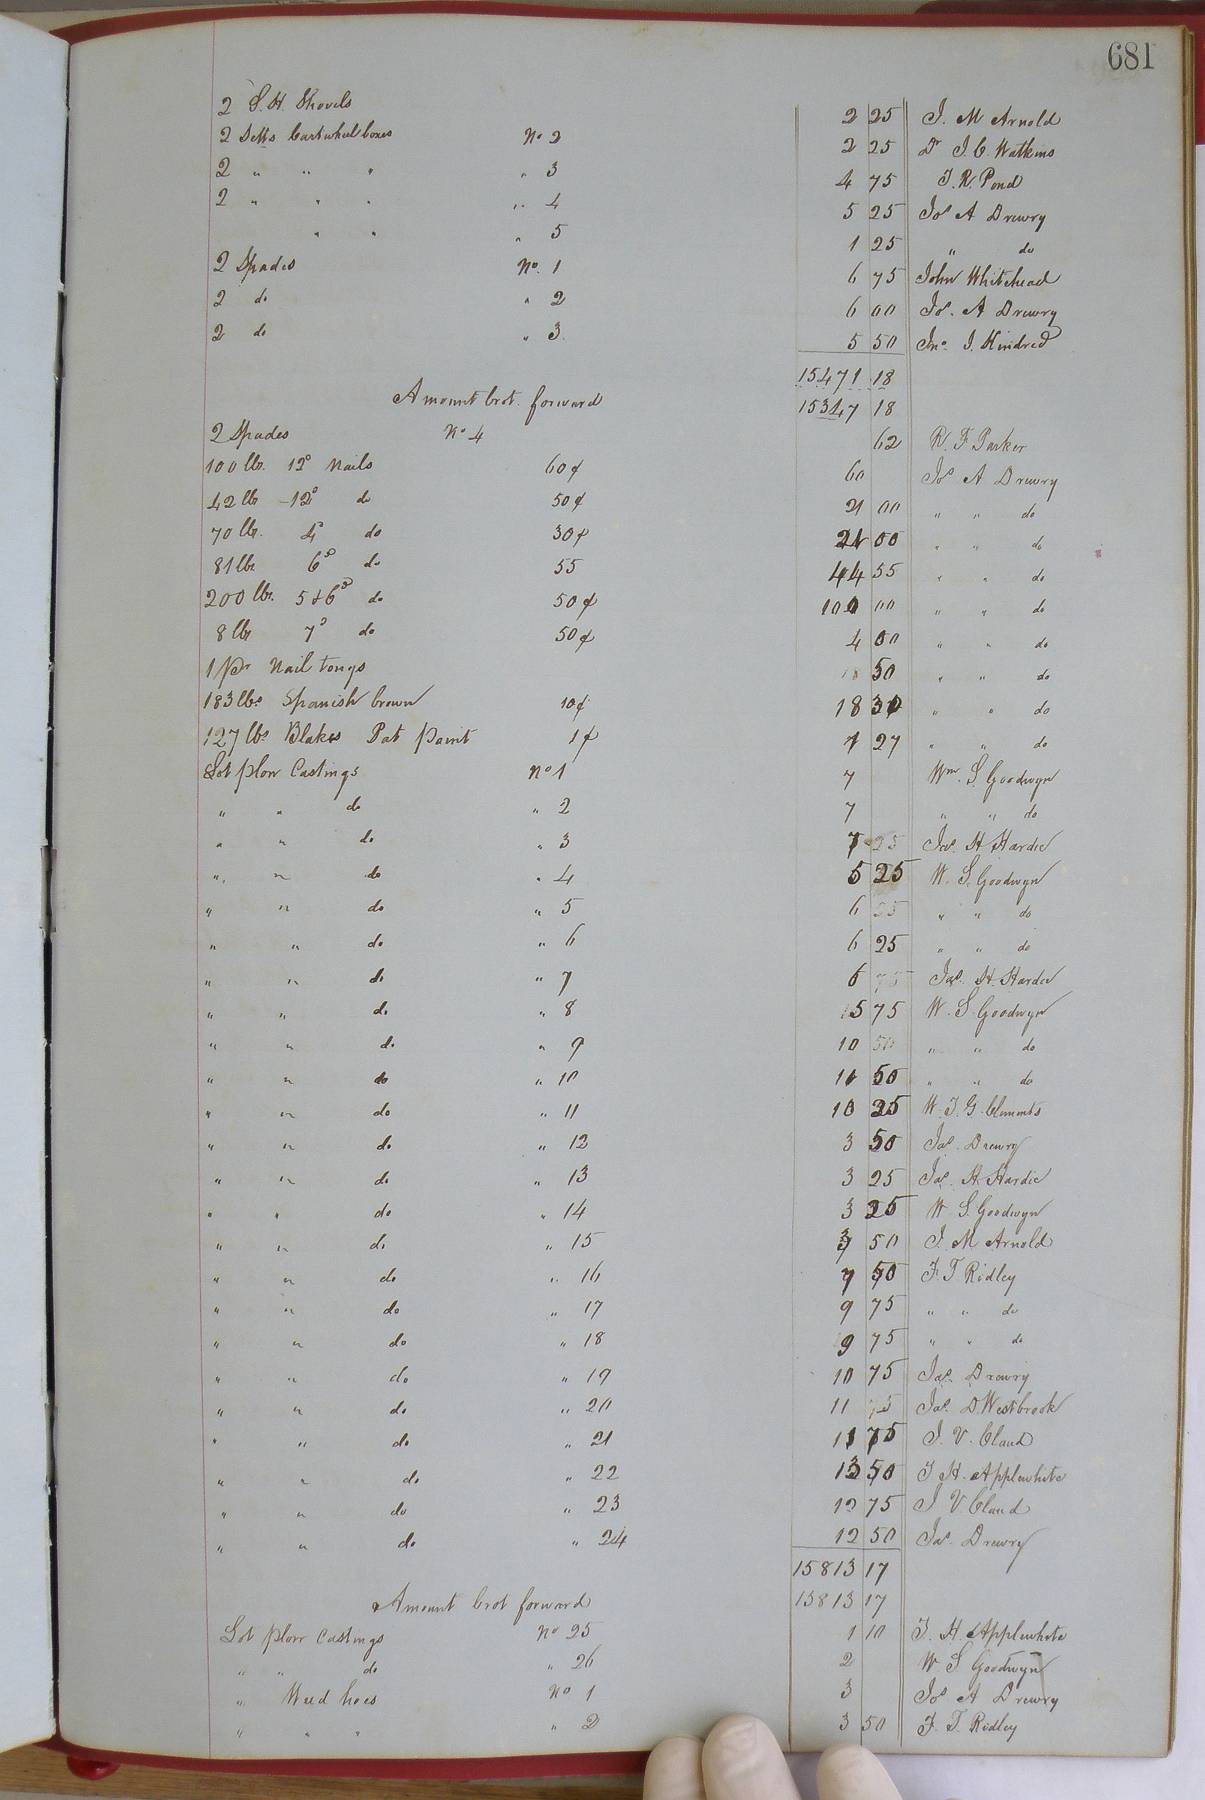 681
2 S. H. Shovels 2 25 J. M Arnold
2 Setts Cartwheel boxes No 2 2 25 Dr J. C. Watkins
2 " " " " 3 4 75 J. R. Pond
2 " " " " 4 5 25 Jos A Drewry
" " " 5 1 25 " do
2 Spades No. 1 6 75 John Whitehead
2 do " 2 6 00 Jos. A Drewry
2 do " 3. 5 50 Jno. J. Kindred
15471 18
Amount brot. forward 15347 18
2 Spades No 4 62 R. F Parker
100 lbs. 12d Nails 60¢ 60 Jos A Drewry
42 lbs 12d do 50¢ 21 00 " " do
70 lbs. 4d do 30¢ 21 00 " " do
81 lbs 6d do 55 44 55 " " do
200 lbs. 5 & 6d do 50¢ 100 00 " " do
8 lbs 7d do 50¢ 4 00 " " do
1 pr Nail tongs 50 " " do
183 lbs Spanish brown 10¢ 18 30 " " do
127 lbs Blakes Pat paint 1¢ 1 27 " " do
Lot plow Castings No 1 7 Wm. S. Goodwyn
" " do " 2 7 " " do
" " do " 3 7 25 Jas. H Hardie
" " do " 4 5 25 W. S. Goodwyn
" " do " 5 6 25 " " do
" " do " 6 6 25 " " do
" " do " 7 6 75 Jas. H. Hardie
" " do " 8 5 75 W. S. Goodwyn
" " do " 9 10 50 " " do
" " do " 10 11 50 " " do
" " do " 11 10 25 W. J. G. Clements
" " do " 12 3 50 Jas. Drewry
" " do " 13 3 25 Jas. H. Hardie
" " do " 14 3 25 W S. Goodwyn
" " do " 15 3 50 J. M Arnold
" " do " 16 7 50 F. T Ridley
" " do " 17 9 75 " " do
" " do " 18 9 75 " " do
" " do " 19 10 75 Jas. Drewry
" " do " 20 11 75 Jas. D Westbrook
" " do " 21 11 75 J. V. Claud
" " do " 22 13 50 T H. Applewhite
" " do " 23 12 75 J V Claud
" " do " 24 12 50 Jas. Drewry
15813 17
Amount brot forward 15813 17
Lot plow Castings No 25 1 10 T. H. Applewhite
" " do " 26 2 W S Goodwyn
" Weed hoes No 1 3 Jos A Drewry
" " " " 2 3 50 F. T. Ridley